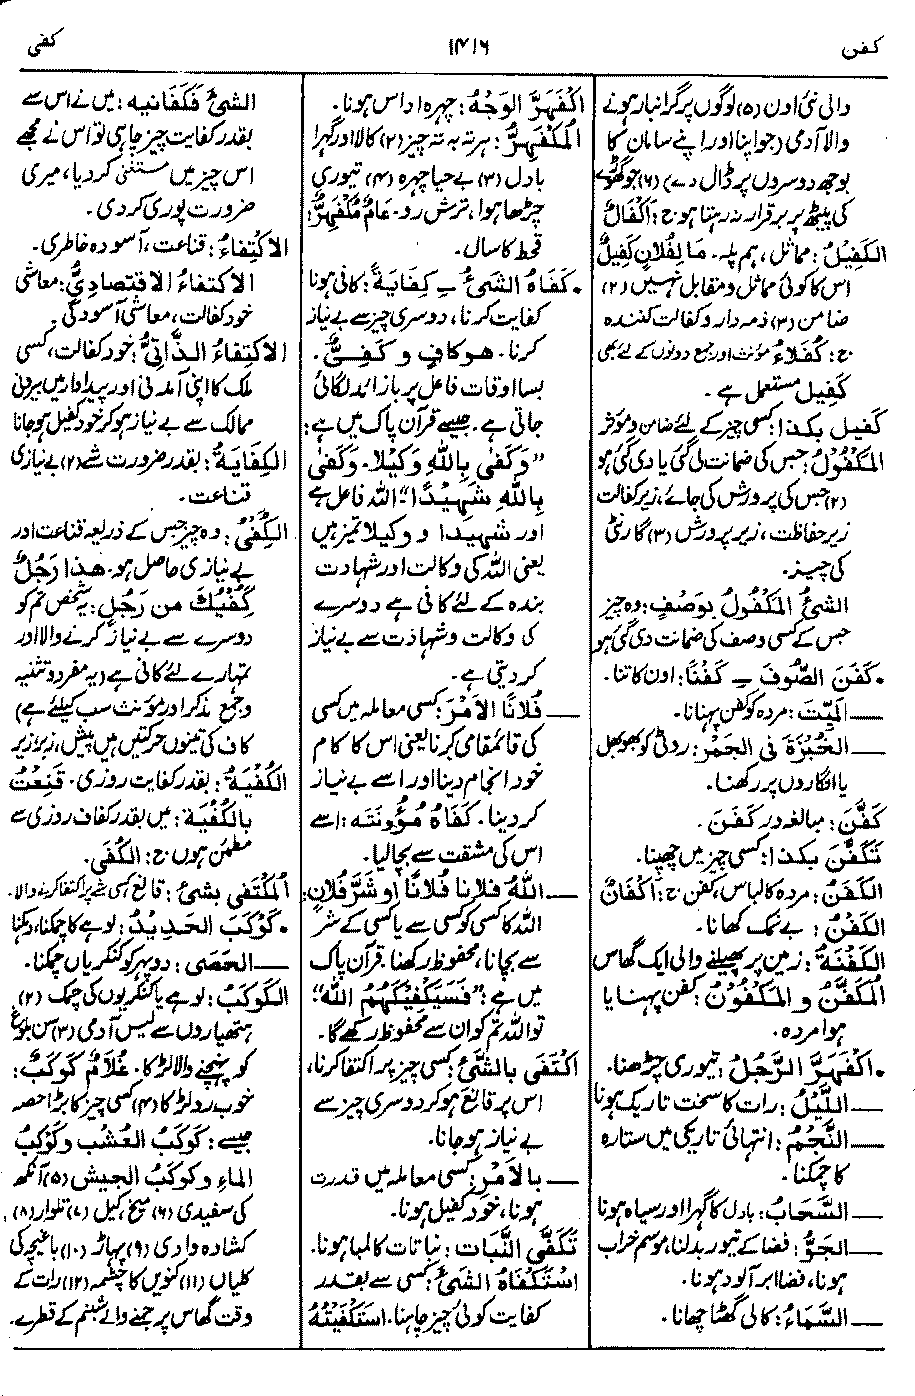 کفن
۱۴۱۶
کفی
والی نئی اون (۵) لوگوں پر گرانبار ہونے
والا آدمی (جو اپنا اور اپنے سامان کا
بوجھ دوسروں پر ڈال دے) (۶) جو گھوڑے
کی پیٹھ پر برقرار نہ رہتا ہو ج: اَکْفَالٌ
الکَفِیْلُ: مماثل، ہم پلہ۔ مَا لِفُلَانٍ کَفِیْلٌ
اس کا کوئی مماثل و مقابل نہیں (۲)
ضامن (۳) ذمہ دار و کفالت کنندہ
ج: کُفَلَاءُ مؤنث اور جمع دونوں کے لئے بھی
کفیل مستعمل ہے۔
کفیل بکذا: کسی چیز کے لئے ضامن و مؤثر
المَکْفُوْلُ: جس کی ضمانت لی گئی یا دی گئی ہو
(۲) جس کی پرورش کی جائے، زیر کفالت
زیر حفاظت، زیر پرورش (۳) گارنٹی
کی چیز۔
الشیُٔ المَکْفُولُ بِوَصْفٍ: وہ چیز
جس کے کسی وصف کی ضمانت دی گئی ہو
• کَفَنَ الصُّوفَ ــِ کَفْنًا: اون کاتنا۔
ــــ المَیِّتَ: مردہ کو کفن پہنانا۔
ــــ الخُبْزَةَ فی الجَمْرِ: روٹی کو بھوبھل
یا انگاروں پر رکھنا۔
کَفَّنَ: مبالغہ در کَفَنَ۔
تَکَفَّنَ بکذا: کسی چیز میں چھپنا۔
الکَفَنُ: مردہ کا لباس، کفن ج: اَکْفَانٌ
الکَفْنُ: بے نمک کھانا۔
الکَفْنَةُ: زمین پر پھیلنے والی ایک گھاس
المُکَفَّنُ و المَکْفُونُ: کفن پہنایا
ہوا مردہ۔
• اکْفَهَرَّ الرَّجُلُ: تیوری چڑھنا۔
ــــ اللَّیْلُ: رات کا سخت تاریک ہونا
ــــ النَّجْمُ: انتہائی تاریکی میں ستارہ
کا چمکنا۔
ــــ السَّحَابُ: بادل کا گہرا اور سیاہ ہونا
ــــ الجَوُّ: فضا کے تیور بدلنا، موسم خراب
ہونا، فضا ابر آلود ہونا۔
ــــ السَّمَاءُ: کالی گھٹا چھانا۔
اکْفَهَرَّ الوَجْهُ: چہرہ اداس ہونا۔
المُکْفَهِرُّ: ہر تہ بہ تہ چیز (۲) کالا اور گہرا
بادل (۳) بے حیا چہرہ (۴) تیوری
چڑھا ہوا، ترش رو۔ عَامٌ مُکْفَهِرٌّ:
قحط کا سال۔
• کَفَاهُ الشیُٔ ــِ کِفَایَةً: کافی ہونا
کفایت کرنا، دوسری چیز سے بے نیاز
کرنا۔ هو کافٍ و کَفِیٌّ۔
بسا اوقات فاعل پر باز ائد لگائی
جاتی ہے۔ جیسے قرآن پاک میں ہے:
”وَکَفٰی بِاللّٰهِ وَکِیْلًا۔ وَکَفٰی
بِاللّٰهِ شَهِیْدًا“ اللہ فاعل ہے
اور شهیدا و وکیلا تمیز ہیں
یعنی اللہ کی وکالت اور شہادت
بندہ کے لئے کافی ہے دوسرے
کی وکالت و شہادت سے بے نیاز
کر دیتی ہے۔
ــــ فُلَانًا الاَمْرَ: کسی معاملہ میں کسی
کی قائمقامی کرنا یعنی اس کا کام
خود انجام دینا اور اسے بے نیاز
کر دینا۔ کَفَاهُ مَؤُونَتَه: اسے
اس کی مشقت سے بچا لیا۔
ــــ اللّٰهُ فلانا فُلَانًا أو شَرَّ فُلَانٍ:
اللہ کا کسی کو کسی سے یا کسی کے شر
سے بچانا، محفوظ رکھنا۔ قرآن پاک
میں ہے: ”فَسَیَکْفِیْکَهُمُ اللّٰهُ“:
تو اللہ تم کو ان سے محفوظ رکھے گا۔
اکْتَفَی بالشَّیْٔ: کسی چیز پر اکتفا کرنا،
اس پر قانع ہو کر دوسری چیز سے
بے نیاز ہو جانا۔
ــــ بالاَمْرِ: کسی معاملہ میں قدرت
ہونا، خود کفیل ہونا۔
تَکَفَّی النَّبَاتُ: نباتات کا لمبا ہونا۔
اسْتَکْفَاهُ الشیَٔ: کسی سے بقدر
کفایت کوئی چیز چاہنا۔ استَکْفَیْتُهُ
الشیَٔ فَکَفَانِیه: میں نے اس سے
بقدر کفایت چیز چاہی تو اس نے مجھے
اس چیز میں مستغنی کر دیا، میری
ضرورت پوری کر دی۔
الاکْتِفَاءُ: قناعت، آسودہ خاطری۔
الاکتفاءُ الاقتصادِیُّ: معاشی
خود کفالت، معاشی آسودگی۔
الاکْتِفَاءُ الذَّاتِیُّ: خود کفالت، کسی
ملک کا اپنی آمدنی اور پیداوار میں بیرونی
ممالک سے بے نیاز ہو کر خود کفیل ہو جانا
الکِفَایَةُ: بقدر ضرورت شے (۲) بے نیازی
قناعت۔
الکُفْیُ: وہ چیز جس کے ذریعہ قناعت اور
بے نیازی حاصل ہو۔ هذا رَجُلٌ
کُفْیُكَ من رَجُلٍ: یہ شخص تم کو
دوسرے سے بے نیاز کرنے والا اور
تمہارے لئے کافی ہے (یہ مفرد و تثنیہ
و جمع مذکر اور مؤنث سب کیلئے ہے)
کاف کی تینوں حرکتیں ہیں پیش، زبر، زیر
الکُفْیَةُ: بقدر کفایت روزی۔ قَنِعْتُ
بالکُفْیَة: میں بقدر کفاف روزی سے
مطمئن ہوں ج: الکُفَی۔
المُکْتَفِی بشیٔ: قانع کسی شے پر اکتفا کرنے والا۔
• کَوْکَبَ الحَدِیْدُ: لوہے کا چمکنا، دمکنا
ــــ الحَصَی: دوپہر کو کنکریاں چمکنا۔
الکَوکَبُ: لوہے یا کنکریوں کی چمک (۲)
ہتھیاروں سے لیس آدمی (۳) سن بلوغ
کو پہنچنے والا لڑکا۔ غُلَامٌ کَوکَبٌ:
خوب رو لڑکا (۴) کسی چیز کا بڑا حصہ
جیسے: کَوکَبُ العُشْبِ و کَوْکَبُ
الماءِ و کوکبُ الجیش (۵) آنکھ
کی سفیدی (۶) میخ، کیل (۷) تلوار (۸)
کشادہ وادی (۹) پہاڑ (۱۰) باغیچہ کی
کلیاں (۱۱) کنویں کا چشمہ (۱۲) رات کے
وقت گھاس پر جمنے والے شبنم کے قطرے۔